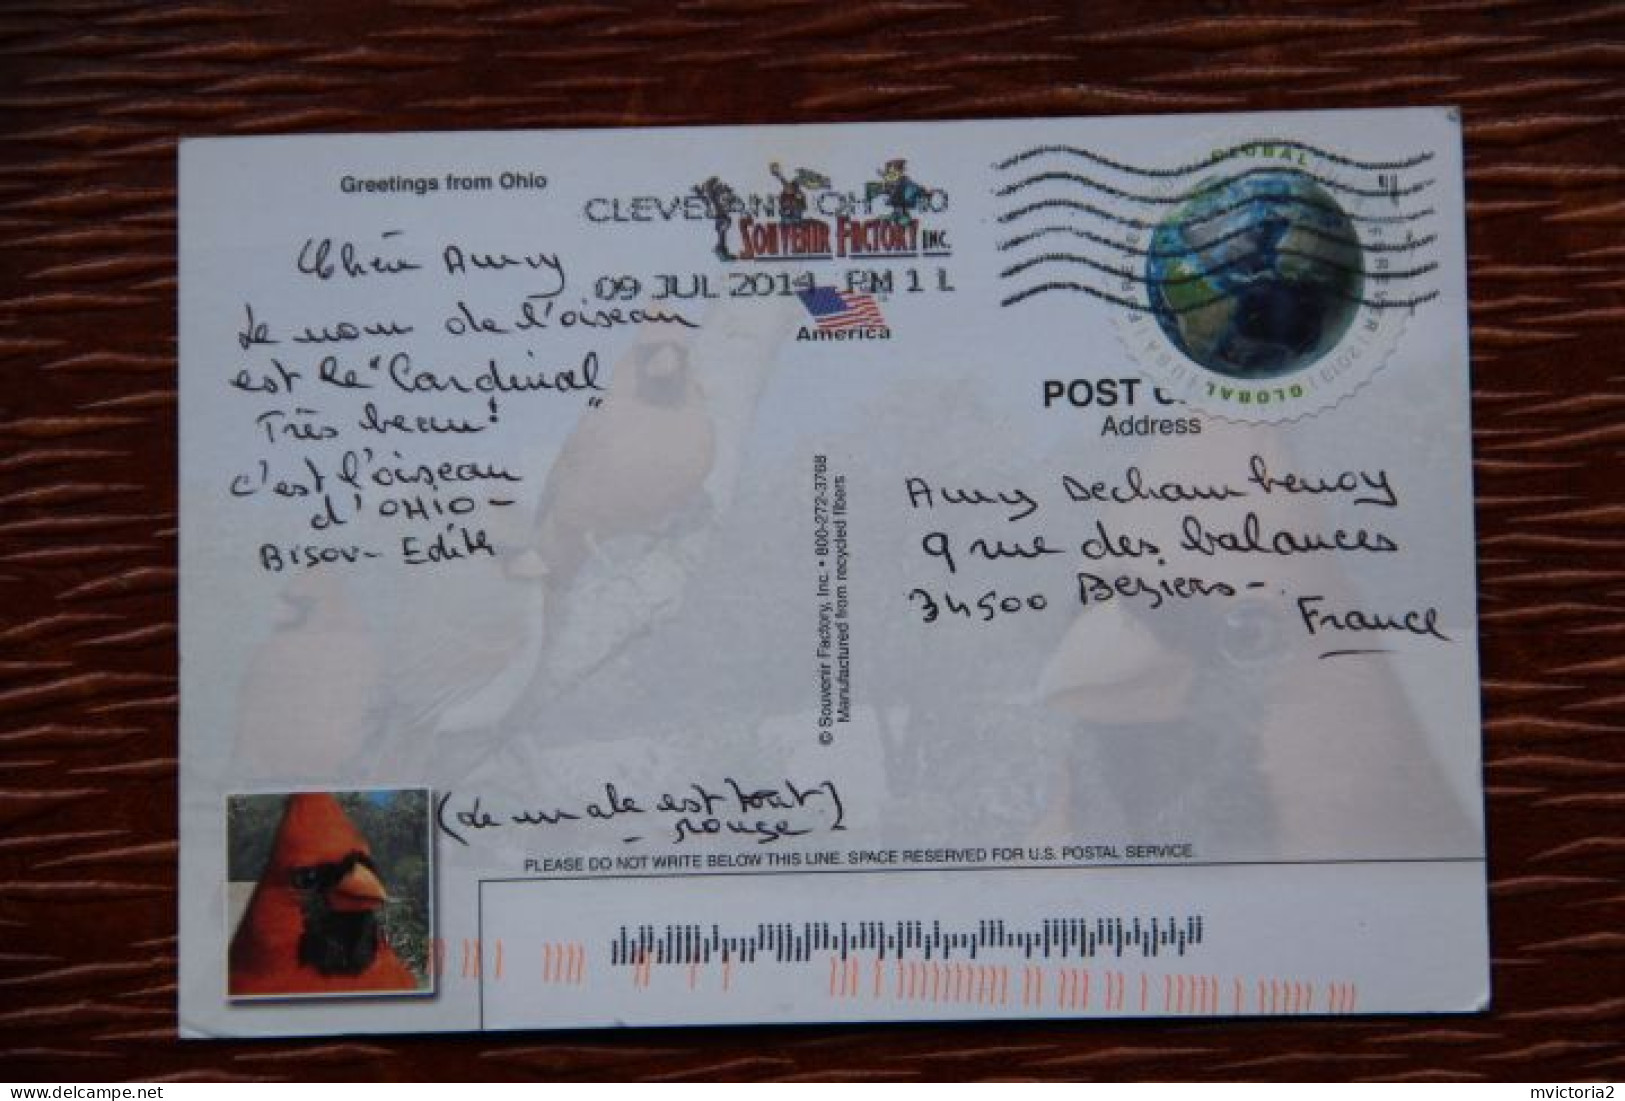 Greetings from Ohio
CLEVELAND OH 440
09 JUL 2014 PM 1 L
SOUVENIR FACTORY INC.
America
GLOBAL
FOREVER
USA
2013
GLOBAL
Chère Amy
Le nom de l'oiseau
est le "Cardinal"
Très beau!
c'est l'oiseau
d'OHIO -
Bisou - Edith
(Le male est tout
rouge)
POST
Address
Amy Dechambenoy
9 rue des balances
34500 Beziers -
France
© Souvenir Factory, Inc. • 800-272-3768
Manufactured from recycled fibers
PLEASE DO NOT WRITE BELOW THIS LINE. SPACE RESERVED FOR U.S. POSTAL SERVICE.
mvictoria2